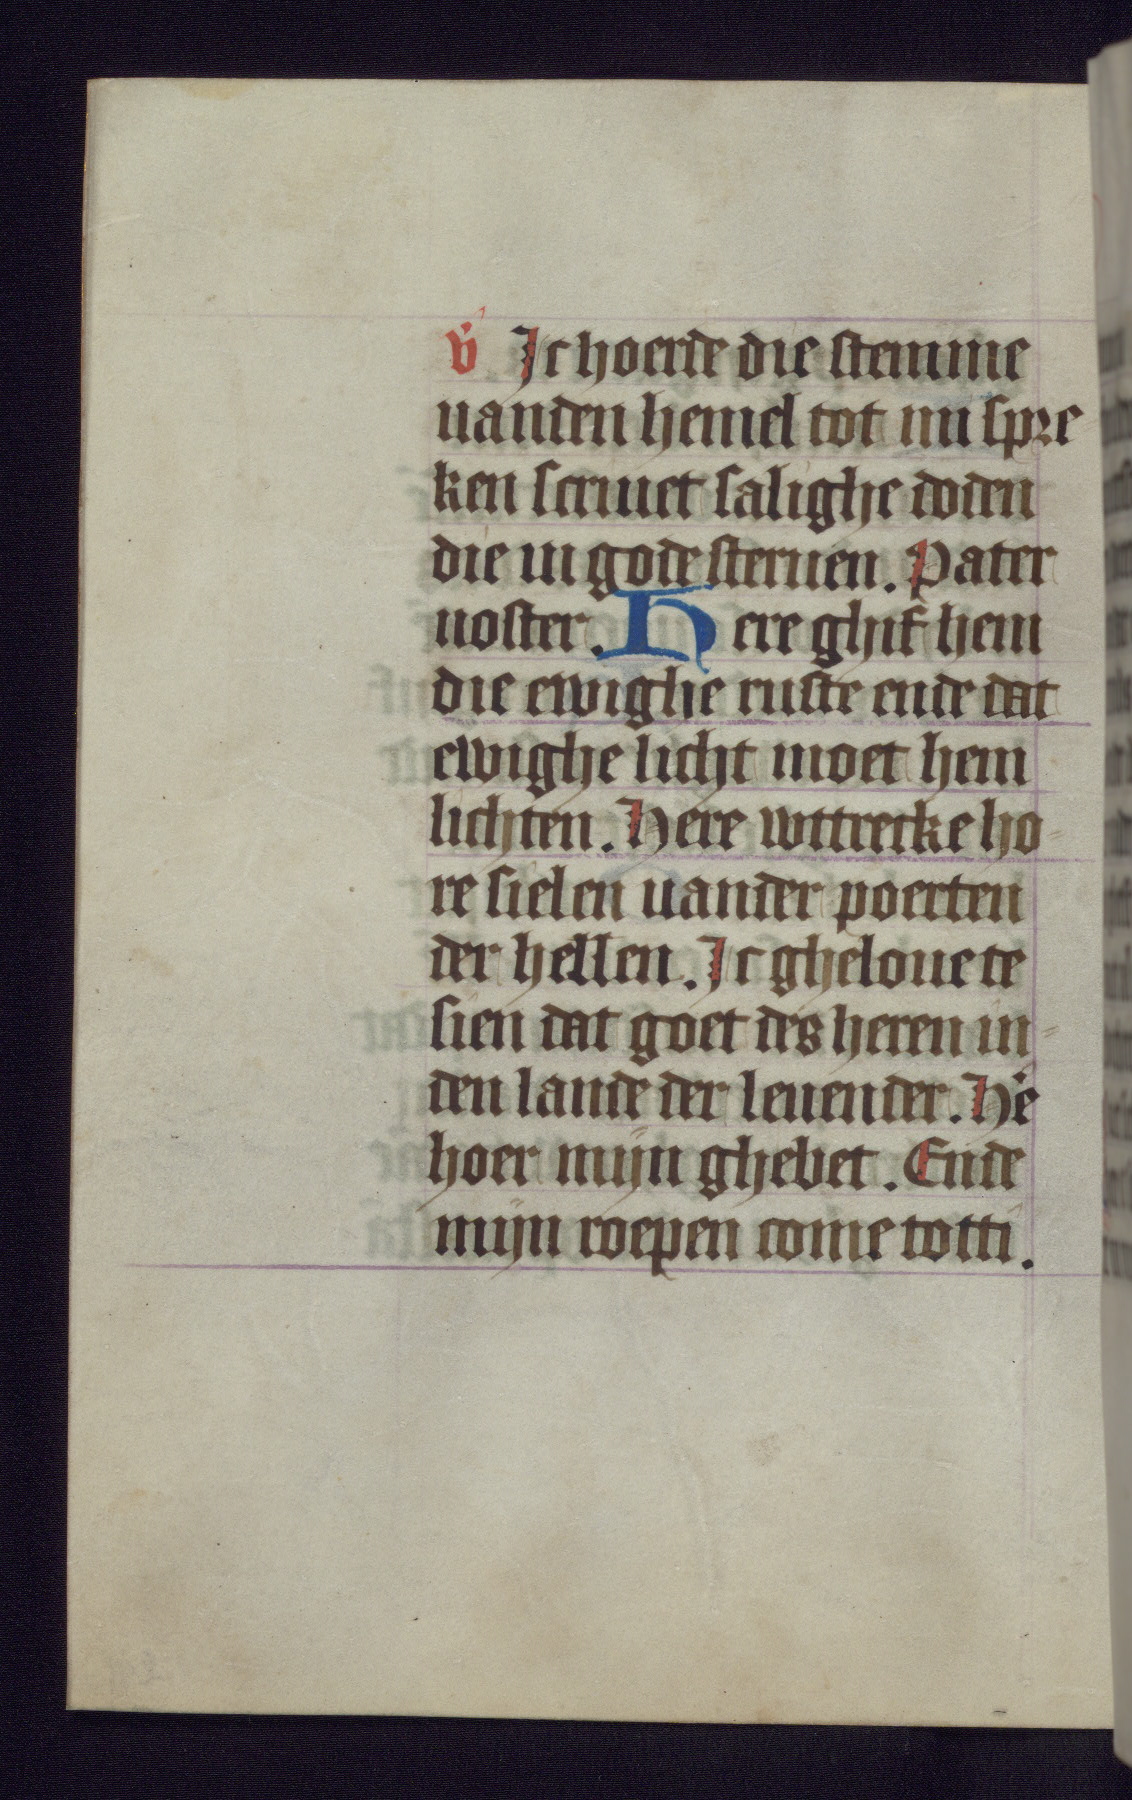 v᷎ Ic hoerde die stemme
uanden hemel tot mi spre
ken scriuet salighe doden
die in gode steruen. Pater
noster. Here ghif hem
die ewighe ruste ende dat
ewighe licht moet hem
lichten. Here wttrecke ho-
re sielen uander poerten
der hellen. Ic gheloue te
sien dat goet des heren in-
den lande der leuender. He᷎
hoer mijn ghebet. Ende
mijn roepen come totti.